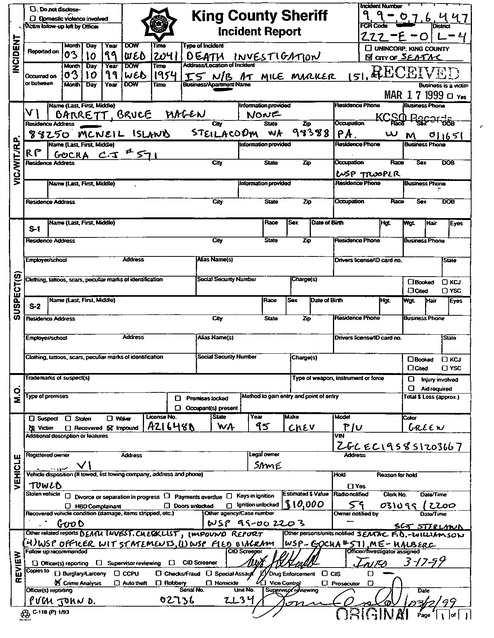 Do not disclose
Domestic violence involved
Victim follow-up left by Officer
King County Sheriff
Incident Report
Incident Number
99-076447
FCR Code District
222-E-0 L-4
INCIDENT
Reported on Month Day Year Time Type of Incident
03 10 99 WED 2041 DEATH INVESTIGATION
UNINCORP, KING COUNTY
CITY OF SEATAC
Occurred on or between Month Day Year Time Address/Location of Incident
03 10 99 WED 1954 I5 N/B AT MILE MARKER 151.
Business/Apartment Name
RECEIVED
Business is a victim
MAR 17 1999 Yes
KCSO Records
VIC/WIT./R.P.
V1 Name (Last, First, Middle) Information provided Residence Phone Business Phone
DARRETT, BRUCE HAGEN NONE
Residence Address City State Zip Occupation Race Sex DOB
88250 MCNEIL ISLAND STEILACOOM WA 98388 P.A. W M 011651
RP Name (Last, First, Middle) Information provided Residence Phone Business Phone
GOCHA C.J #571
Residence Address City State Zip Occupation Race Sex DOB
WSP TROOPER
Name (Last, First, Middle) Information provided Residence Phone Business Phone
Residence Address City State Zip Occupation Race Sex DOB
SUSPECT(S)
S-1 Name (Last, First, Middle) Race Sex Date of Birth Hgt. Wgt. Hair Eyes
Residence Address City State Zip Residence Phone Business Phone
Employer/school Address Alias Name(s) Drivers license/ID card no. State
Clothing, tattoos, scars, peculiar marks of identification Social Security Number Charge(s) Booked KCJ
Cited YSC
S-2 Name (Last, First, Middle) Race Sex Date of Birth Hgt. Wgt. Hair Eyes
Residence Address City State Zip Residence Phone Business Phone
Employer/school Address Alias Name(s) Drivers license/ID card no. State
Clothing, tattoos, scars, peculiar marks of identification Social Security Number Charge(s) Booked KCJ
Cited YSC
M.O.
Trademarks of suspect(s) Type of weapon, instrument or force Injury involved
Aid required
Type of premises Premises locked Method to gain entry and point of entry Total $ Loss (approx.)
Occupant(s) present
VEHICLE
Suspect Stolen Waiver License No. State Year Make Model Color
Victim Recovered Impound A21648D WA 95 CHEV P/U GREEN
Additional description or features VIN
2GCEC19S8S1203667
Registered owner Legal owner
V1 SAME
Vehicle disposition (if towed, list towing company, address and phone) Hold Reason for hold
TOWED Yes
Stolen vehicle Divorce or separation in progress Payments overdue Keys in ignition Estimated $ Value Radio notified Clerk No. Date/Time
HBD Complainant Doors unlocked Ignition unlocked $10,000 59 031099 2200
Recovered vehicle condition (damage, items stripped, etc.) Other agency/Case number Owner notified by Date/Time
GOOD WSP 99-002203 SGT STIRLAND
REVIEW
Other related reports DEATH INVEST. CHECKLIST, IMPOUND REPORT Other persons/units notified SEATAC F.D.-WILLIAMSON
(4) WSP OFFICER WIT STATEMENTS, (1) WSP FIELD DIAGRAM WSP-GOCHA #571, ME-HALBERG
Follow up recommended CID Screener Office/Investigator assigned
Officer(s) reporting Supervisor reviewing CID Screener INFO 3-17-99
Copies to Burglary/Larceny CCPU Checks/Fraud Special Assault Drug Enforcement CIS
Crime Analysis Auto theft Robbery Homicide Vice Control Prosecutor
Officer(s) reporting Supervisor reviewing Date
PUGH JOHN D. 02736 2L34
C-118 (P) 1/93
ORIGINAL Page 1 of 1